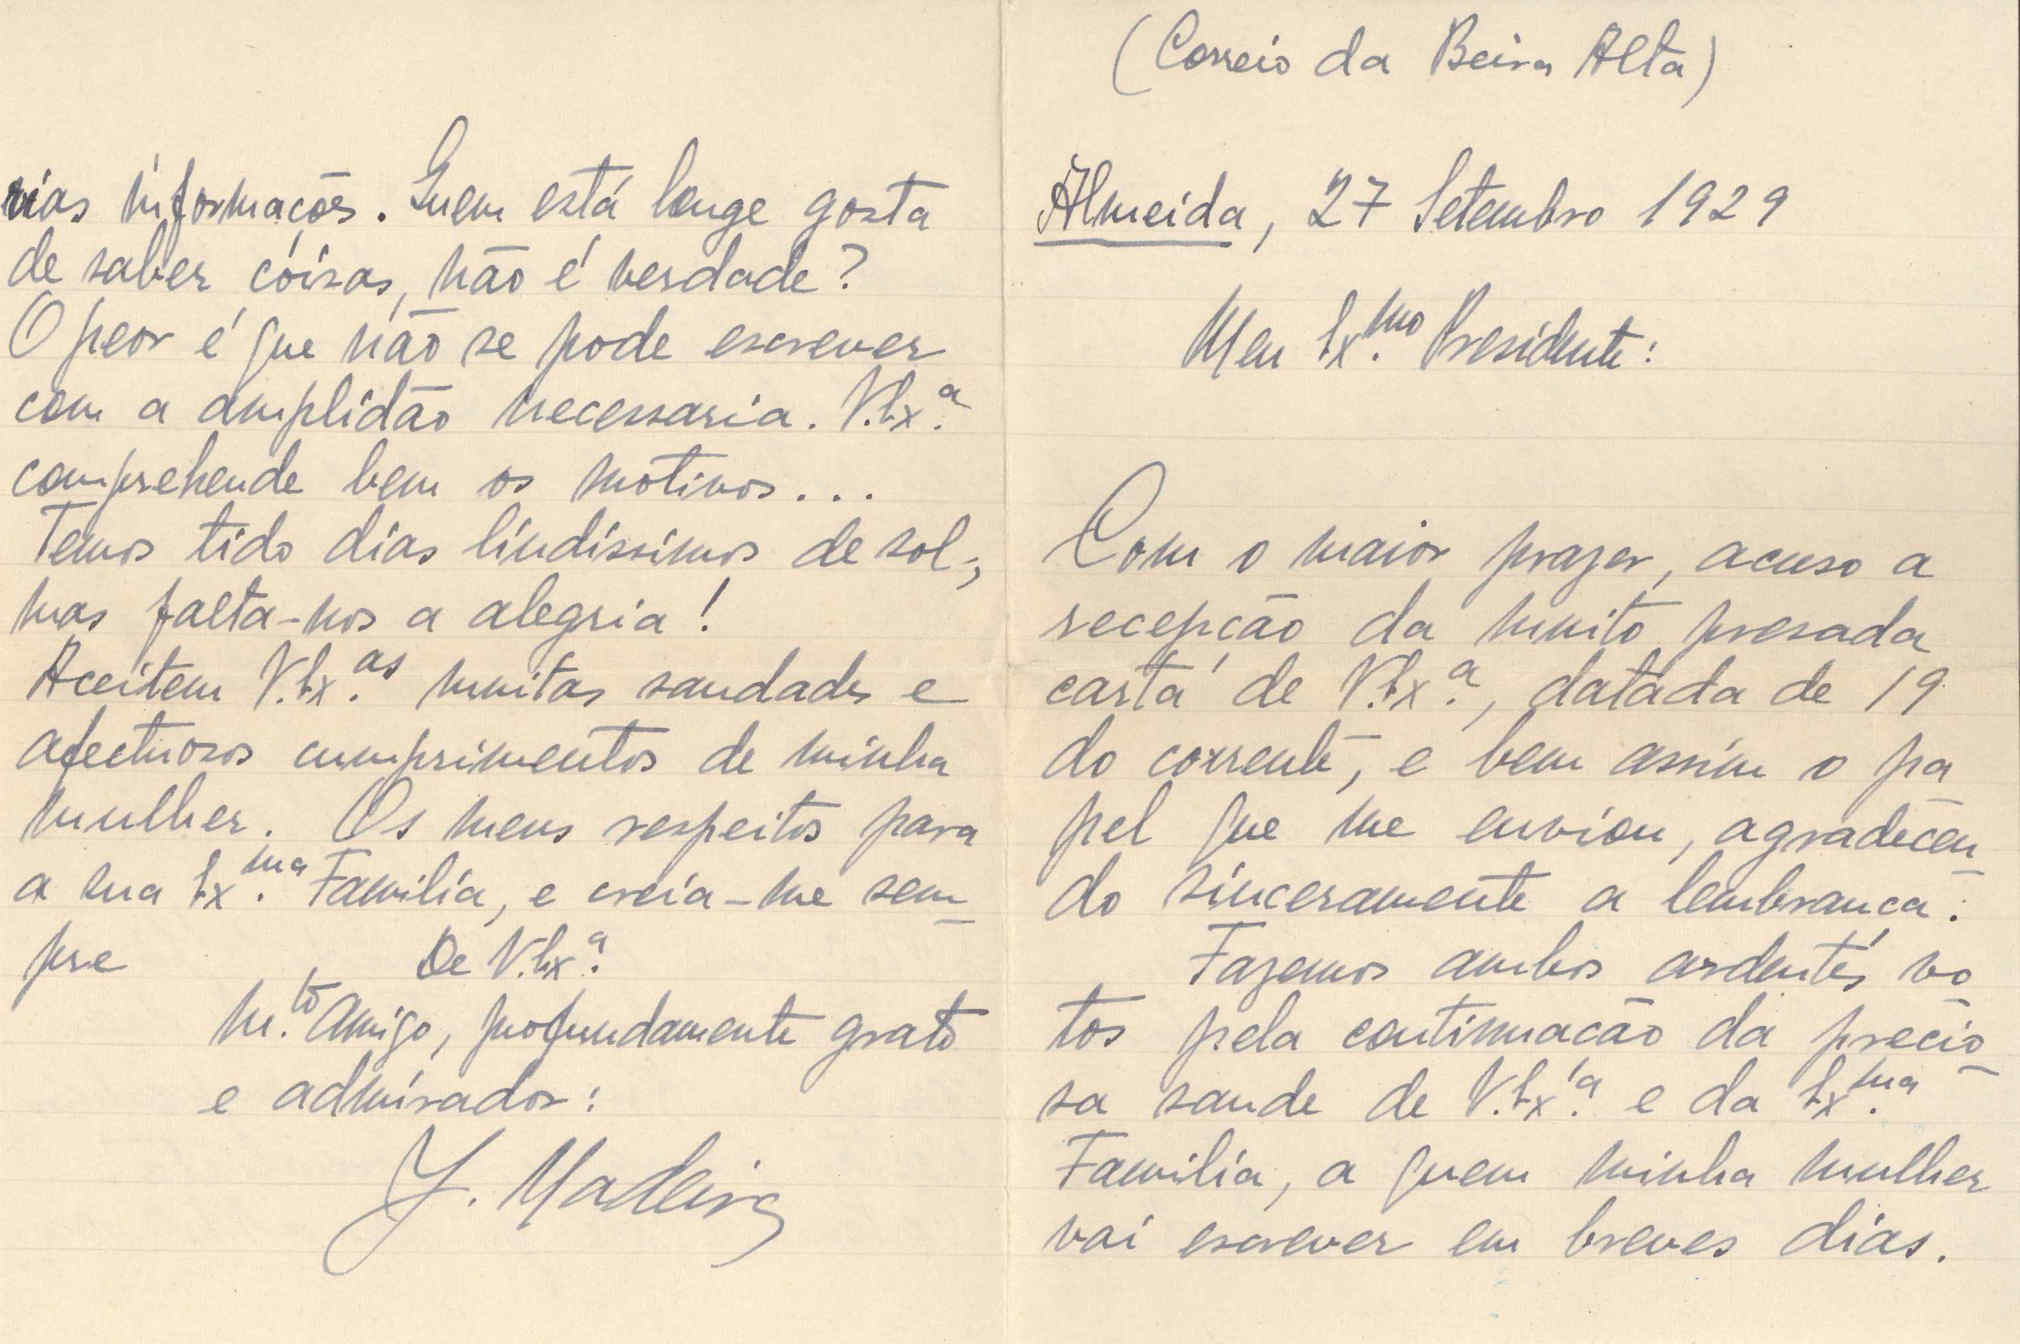 (Correio da Beira Alta)
Almeida, 27 Setembro 1929
Meu Ex.mo Presidente:
Com o maior prazer, acuso a
recepção da muito presada
carta de V.Ex.a, datada de 19
do corrente, e bem assim o pa
pel que me enviou, agradecen
do sinceramente a lembrança.
Fazemos ambos ardentes vo
tos pela continuação da precio
sa saude de V.Ex.a e da Ex.ma
Familia, a quem minha mulher
vai escrever em breves dias.
rias informações. Quem está longe gosta
de saber cóisas, não é verdade?
O peor é que não se pode escrever
com a amplidão necessaria. V.Ex.a
comprehende bem os motivos...
Temos tido dias lindissimos de sol;
mas falta-nos a alegria!
Aceitem V.Ex.as muitas saudades e
afectuosos cumprimentos de minha
mulher. Os meus respeitos para
a sua Ex.ma Familia, e creia-me sem
pre De V.Ex.a
M.to Amigo, profundamente grato
e admirador:
J. Madeira